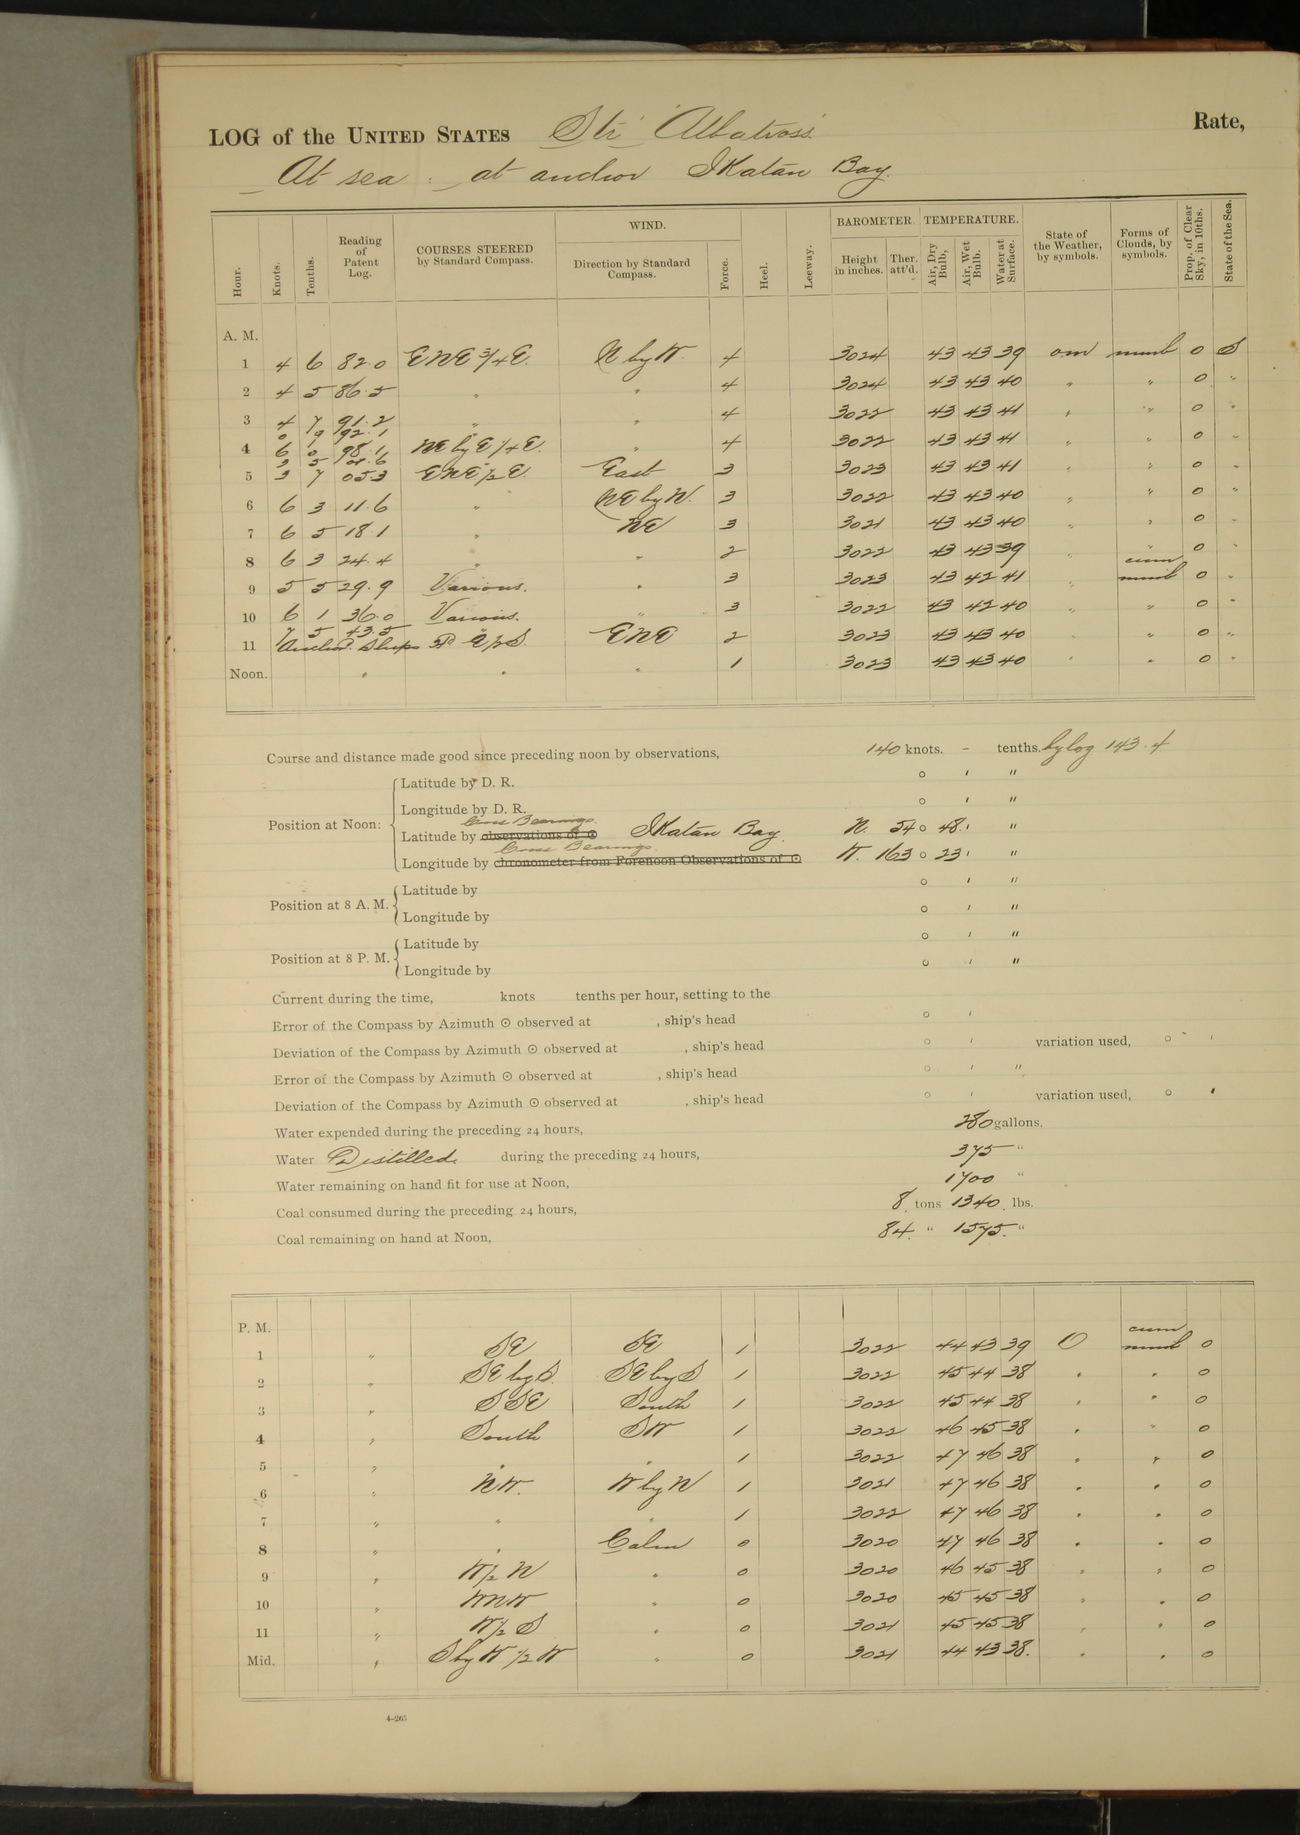 LOG of the UNITED STATES Str "Albatross" Rate,
At sea : at anchor Ikatan Bay.
Hour. Knots. Tenths. Reading of Patent Log. COURSES STEERED by Standard Compass. WIND. Direction by Standard Compass. Force. Heel. Leeway. BAROMETER. Height in inches. Ther. att'd. TEMPERATURE. Air, Dry Bulb, Air, Wet Bulb. Water at Surface. State of the Weather, by symbols. Forms of Clouds, by symbols. Prop. of Clear Sky, in 10ths. State of the Sea.
A. M.
1 4 6 82.0 ENE 3/4 E. N by W. 4 3024 43 43 39 om nimb 0 S
2 4 5 86.5 " " 4 3024 43 43 40 " " 0 "
3 4 7 91.2 " " 4 3022 43 43 41 " " 0 "
0 9 92.1
4 6 0 98.1 NE by E 1/4 E. " 4 3022 43 43 41 " " 0 "
3 5 01.6
5 3 7 053 ENE 1/2 E. East 3 3023 43 43 41 " " 0 "
6 6 3 11.6 " NE by N. 3 3022 43 43 40 " " 0 "
7 6 5 18.1 " NE 3 3021 43 43 40 " " 0 "
8 6 3 24.4 " " 2 3022 43 43 39 " " 0 "
cum
9 5 5 29.9 Various. " 3 3023 43 42 41 " nimb 0 "
10 6 1 36.0 Various. " 3 3022 43 42 40 " " 0 "
7 5 43.5 "
11 Anchd. Ships Hd E 1/2 S. ENE 2 3023 43 43 40 " " 0 "
Noon. " " " 1 3023 43 43 40 " " 0 "
Course and distance made good since preceding noon by observations, 140 knots. – tenths. by log 143.4
Position at Noon: Latitude by D. R. ° ' "
Longitude by D. R. ° ' "
Cross Bearings.
Latitude by observations of ☉ Ikatan Bay. N. 54° 48.' "
Cross Bearings.
Longitude by chronometer from Forenoon Observations of ☉ W. 163° 23' "
Position at 8 A. M. Latitude by ° ' "
Longitude by ° ' "
Position at 8 P. M. Latitude by ° ' "
Longitude by ° ' "
Current during the time, knots tenths per hour, setting to the
Error of the Compass by Azimuth ☉ observed at , ship's head ° '
Deviation of the Compass by Azimuth ☉ observed at , ship's head ° ' variation used, ° '
Error of the Compass by Azimuth ☉ observed at , ship's head ° ' "
Deviation of the Compass by Azimuth ☉ observed at , ship's head ° ' variation used, ° '
Water expended during the preceding 24 hours, 280 gallons.
Water Distilled. during the preceding 24 hours, 375 "
Water remaining on hand fit for use at Noon, 1700 "
Coal consumed during the preceding 24 hours, 8. tons 1340. lbs.
Coal remaining on hand at Noon, 84. " 1575. "
P. M.
cum
1 " SE SE 1 3022 44 43 39 O nimb 0
2 " SE by S. SE by S 1 3022 45 44 38 " " 0
3 " SSE South 1 3022 45 44 38 " " 0
4 " South SW 1 3022 46 45 38 " " 0
5 " " " 1 3022 47 46 38 " " 0
6 " NW. W by N 1 3021 47 46 38 " " 0
7 " " " 1 3022 47 46 38 " " 0
8 " " Calm 0 3020 47 46 38 " " 0
9 " W 1/2 N " 0 3020 46 45 38 " " 0
10 " WNW " 0 3020 45 45 38 " " 0
11 " W 1/2 S " 0 3021 45 45 38 " " 0
Mid. " S by W 1/2 W " 0 3021 44 43 38. " " 0
4–265